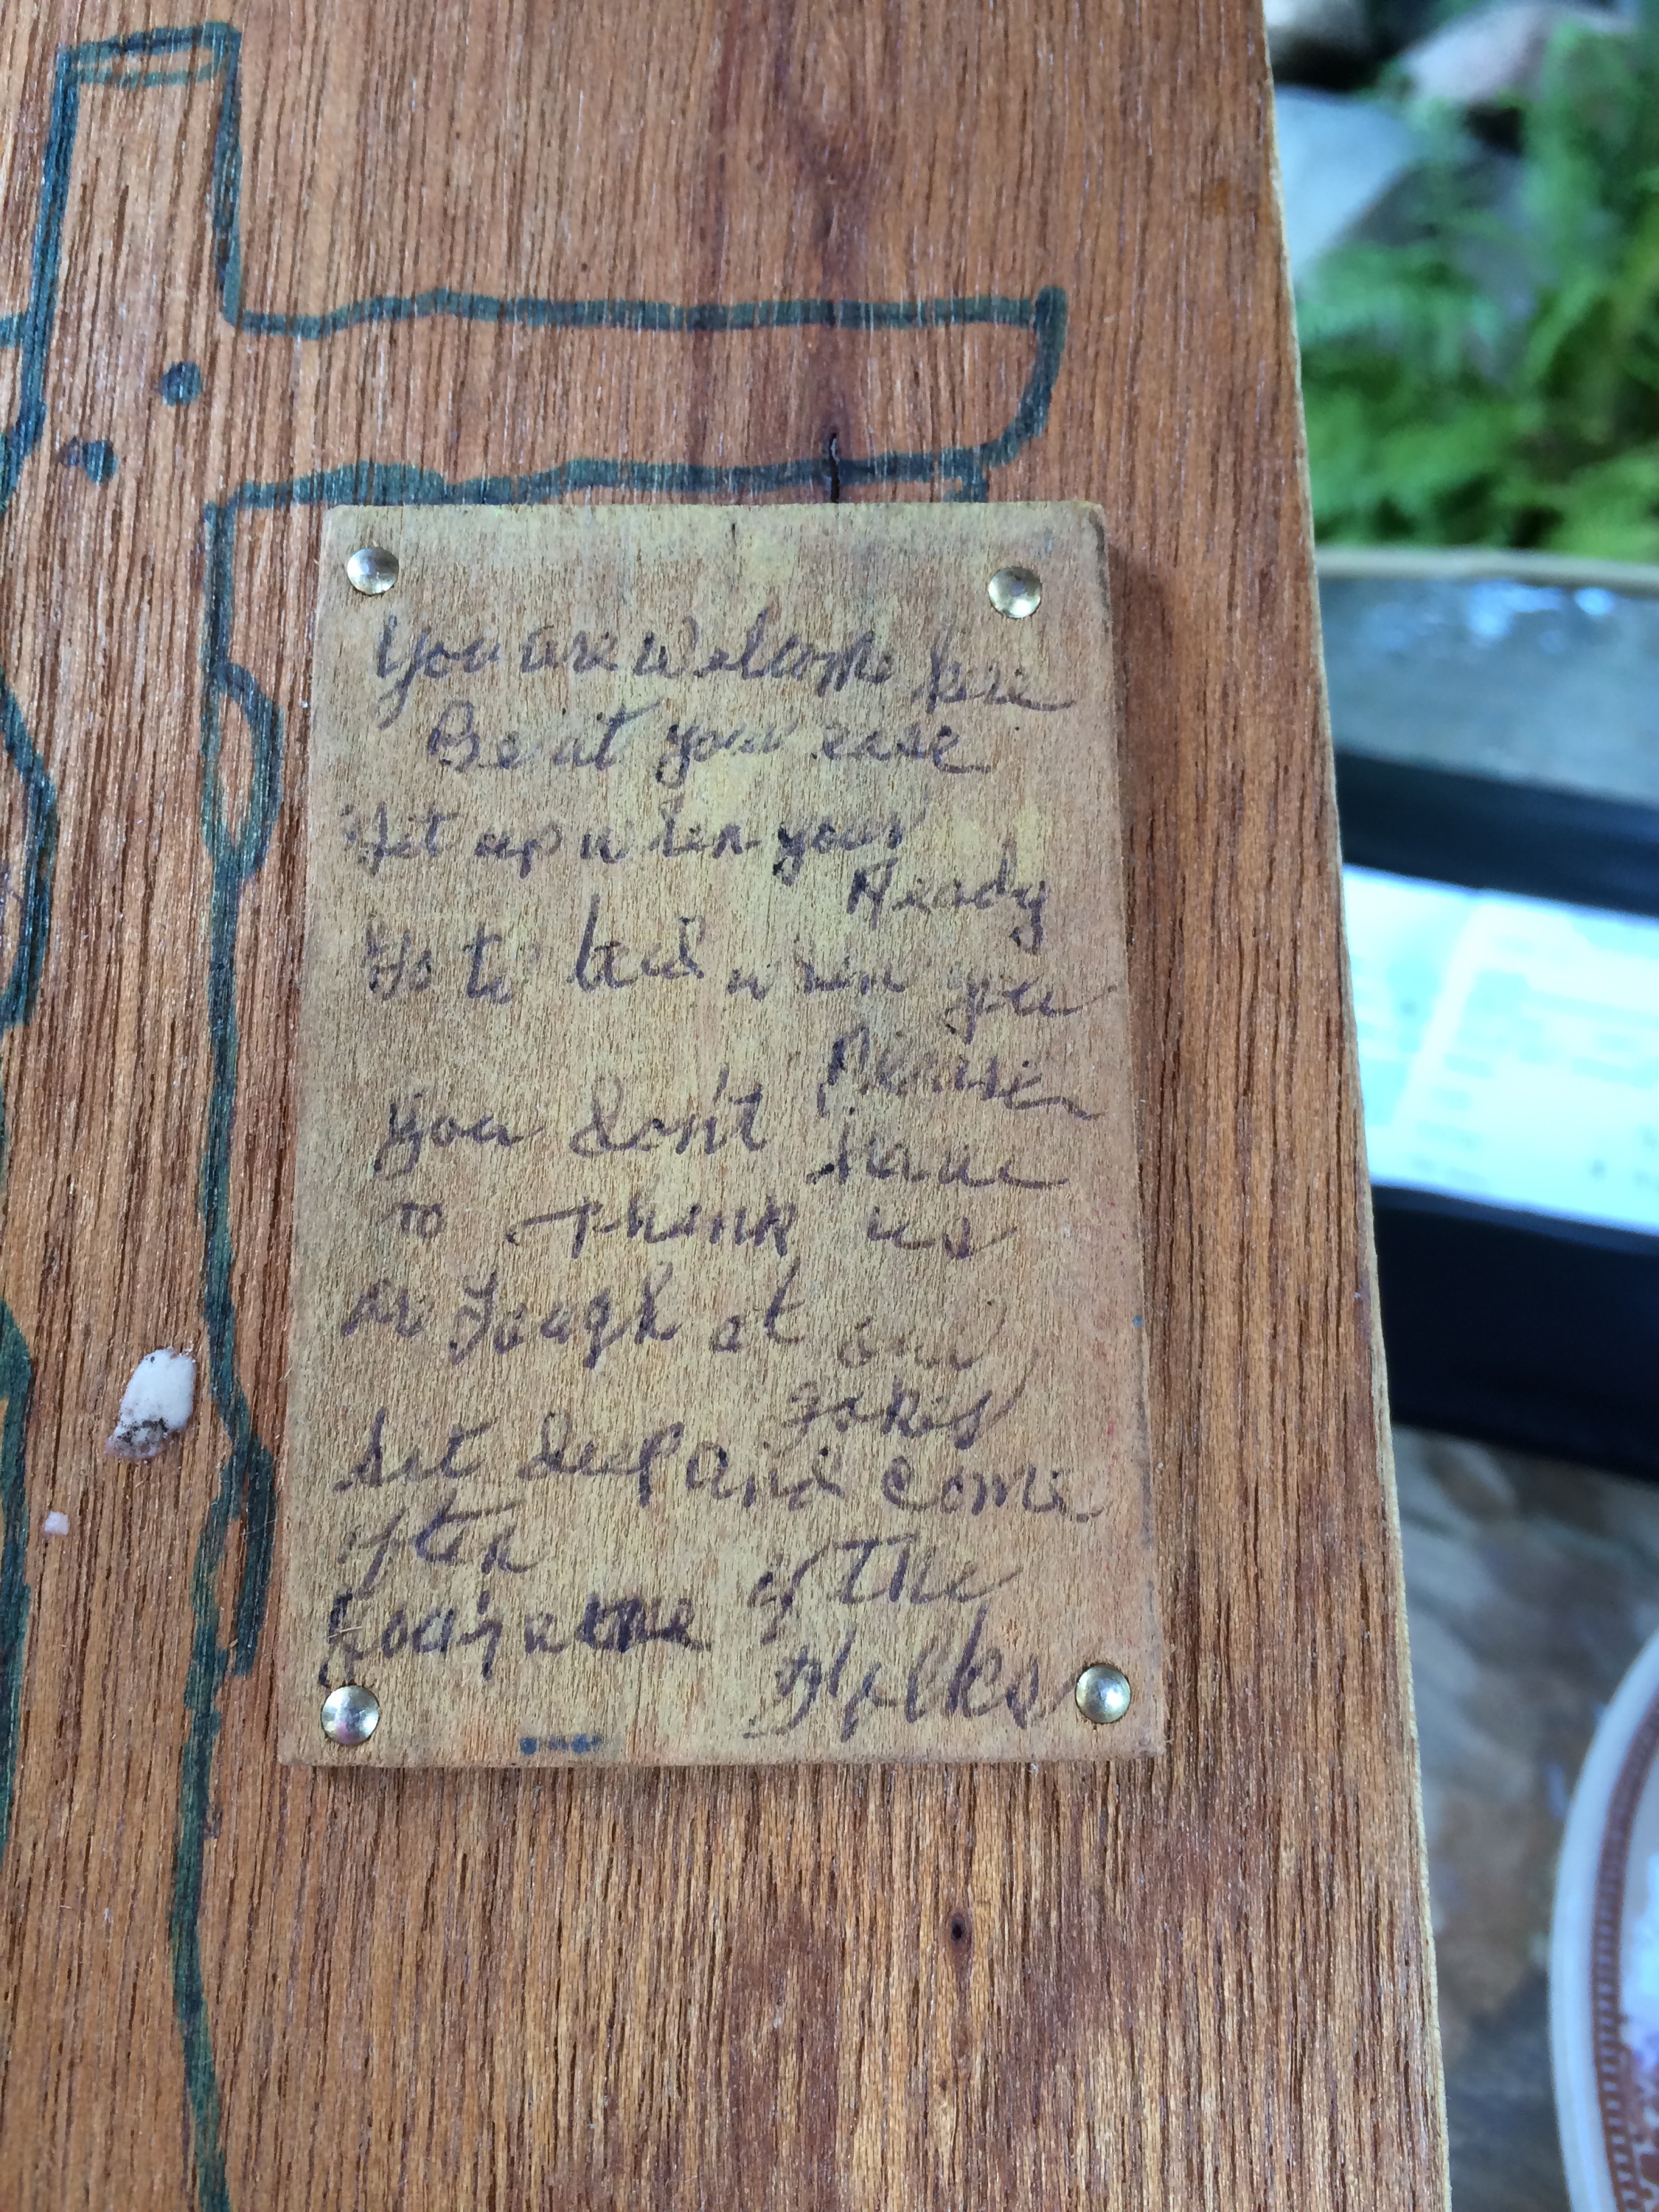 You are welcome here
Be at your ease
Get up when your
Ready
Go to bed when you
Please
You don't have
to Thank us
or Laugh at our
Jokes
Sit deep and come
often
You're one of the
Folks